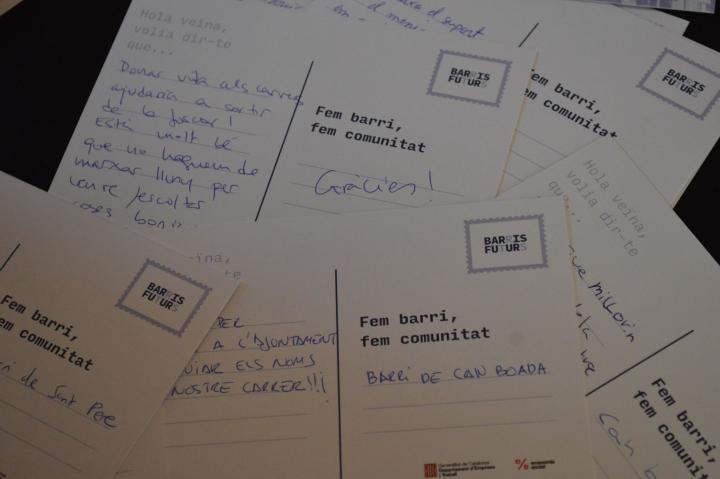 Hola veïna,
volia dir-te
que...
Donar vida als carrers
ajudaria a sortir
de la foscor!
Està molt bé
que no haguem de
marxar lluny per
veure/escoltar
coses bones
BARRIS
FUTURS
Fem barri,
fem comunitat
Gràcies!
BARRIS
FUTURS
Fem barri,
fem comunitat
Hola veïna,
volia dir-te
que...
millorin
Fem barri,
fem comunitat
Can
BARRIS
FUTURS
Fem barri,
fem comunitat
de Sant Pere
A L'AJUNTAMENT
ELS NOMS
NOSTRE CARRER!!!
BARRIS
FUTURS
Fem barri,
fem comunitat
BARRI DE CAN BOADA
Generalitat de Catalunya
Departament d'Empresa
i Treball
economia
social